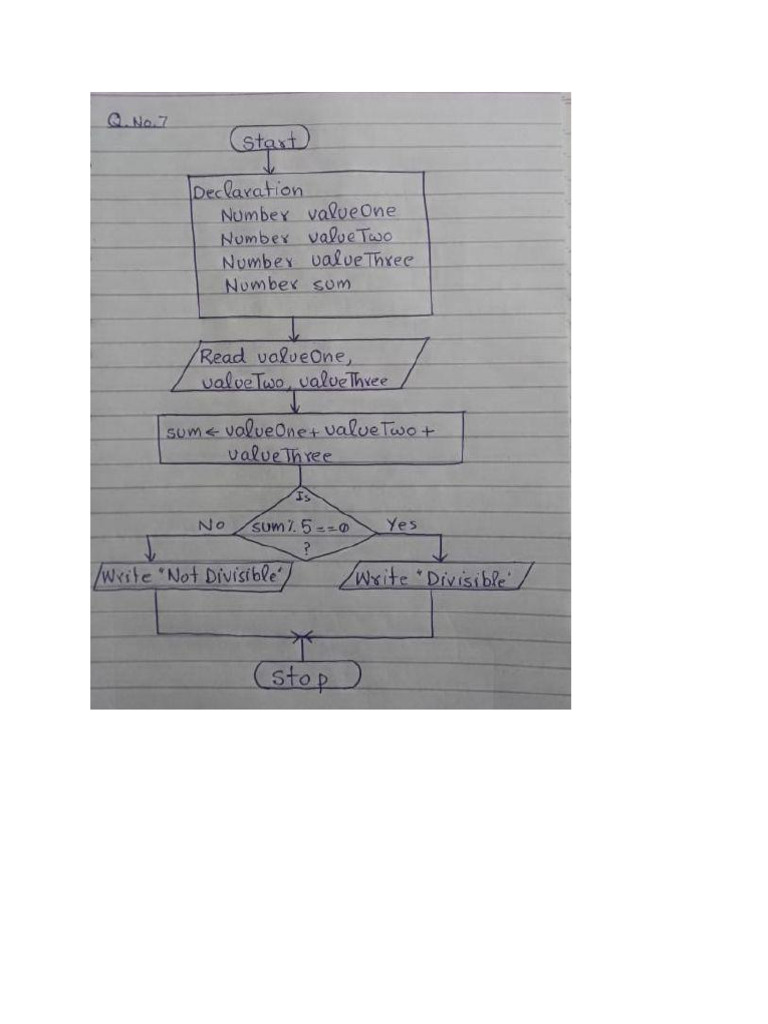 Q.No.7
Start
Declaration
Number valueOne
Number valueTwo
Number valueThree
Number sum
Read valueOne,
valueTwo, valueThree
sum ← valueOne + valueTwo +
valueThree
Is
sum % 5 == 0
?
No
Yes
Write "Not Divisible"
Write "Divisible"
Stop